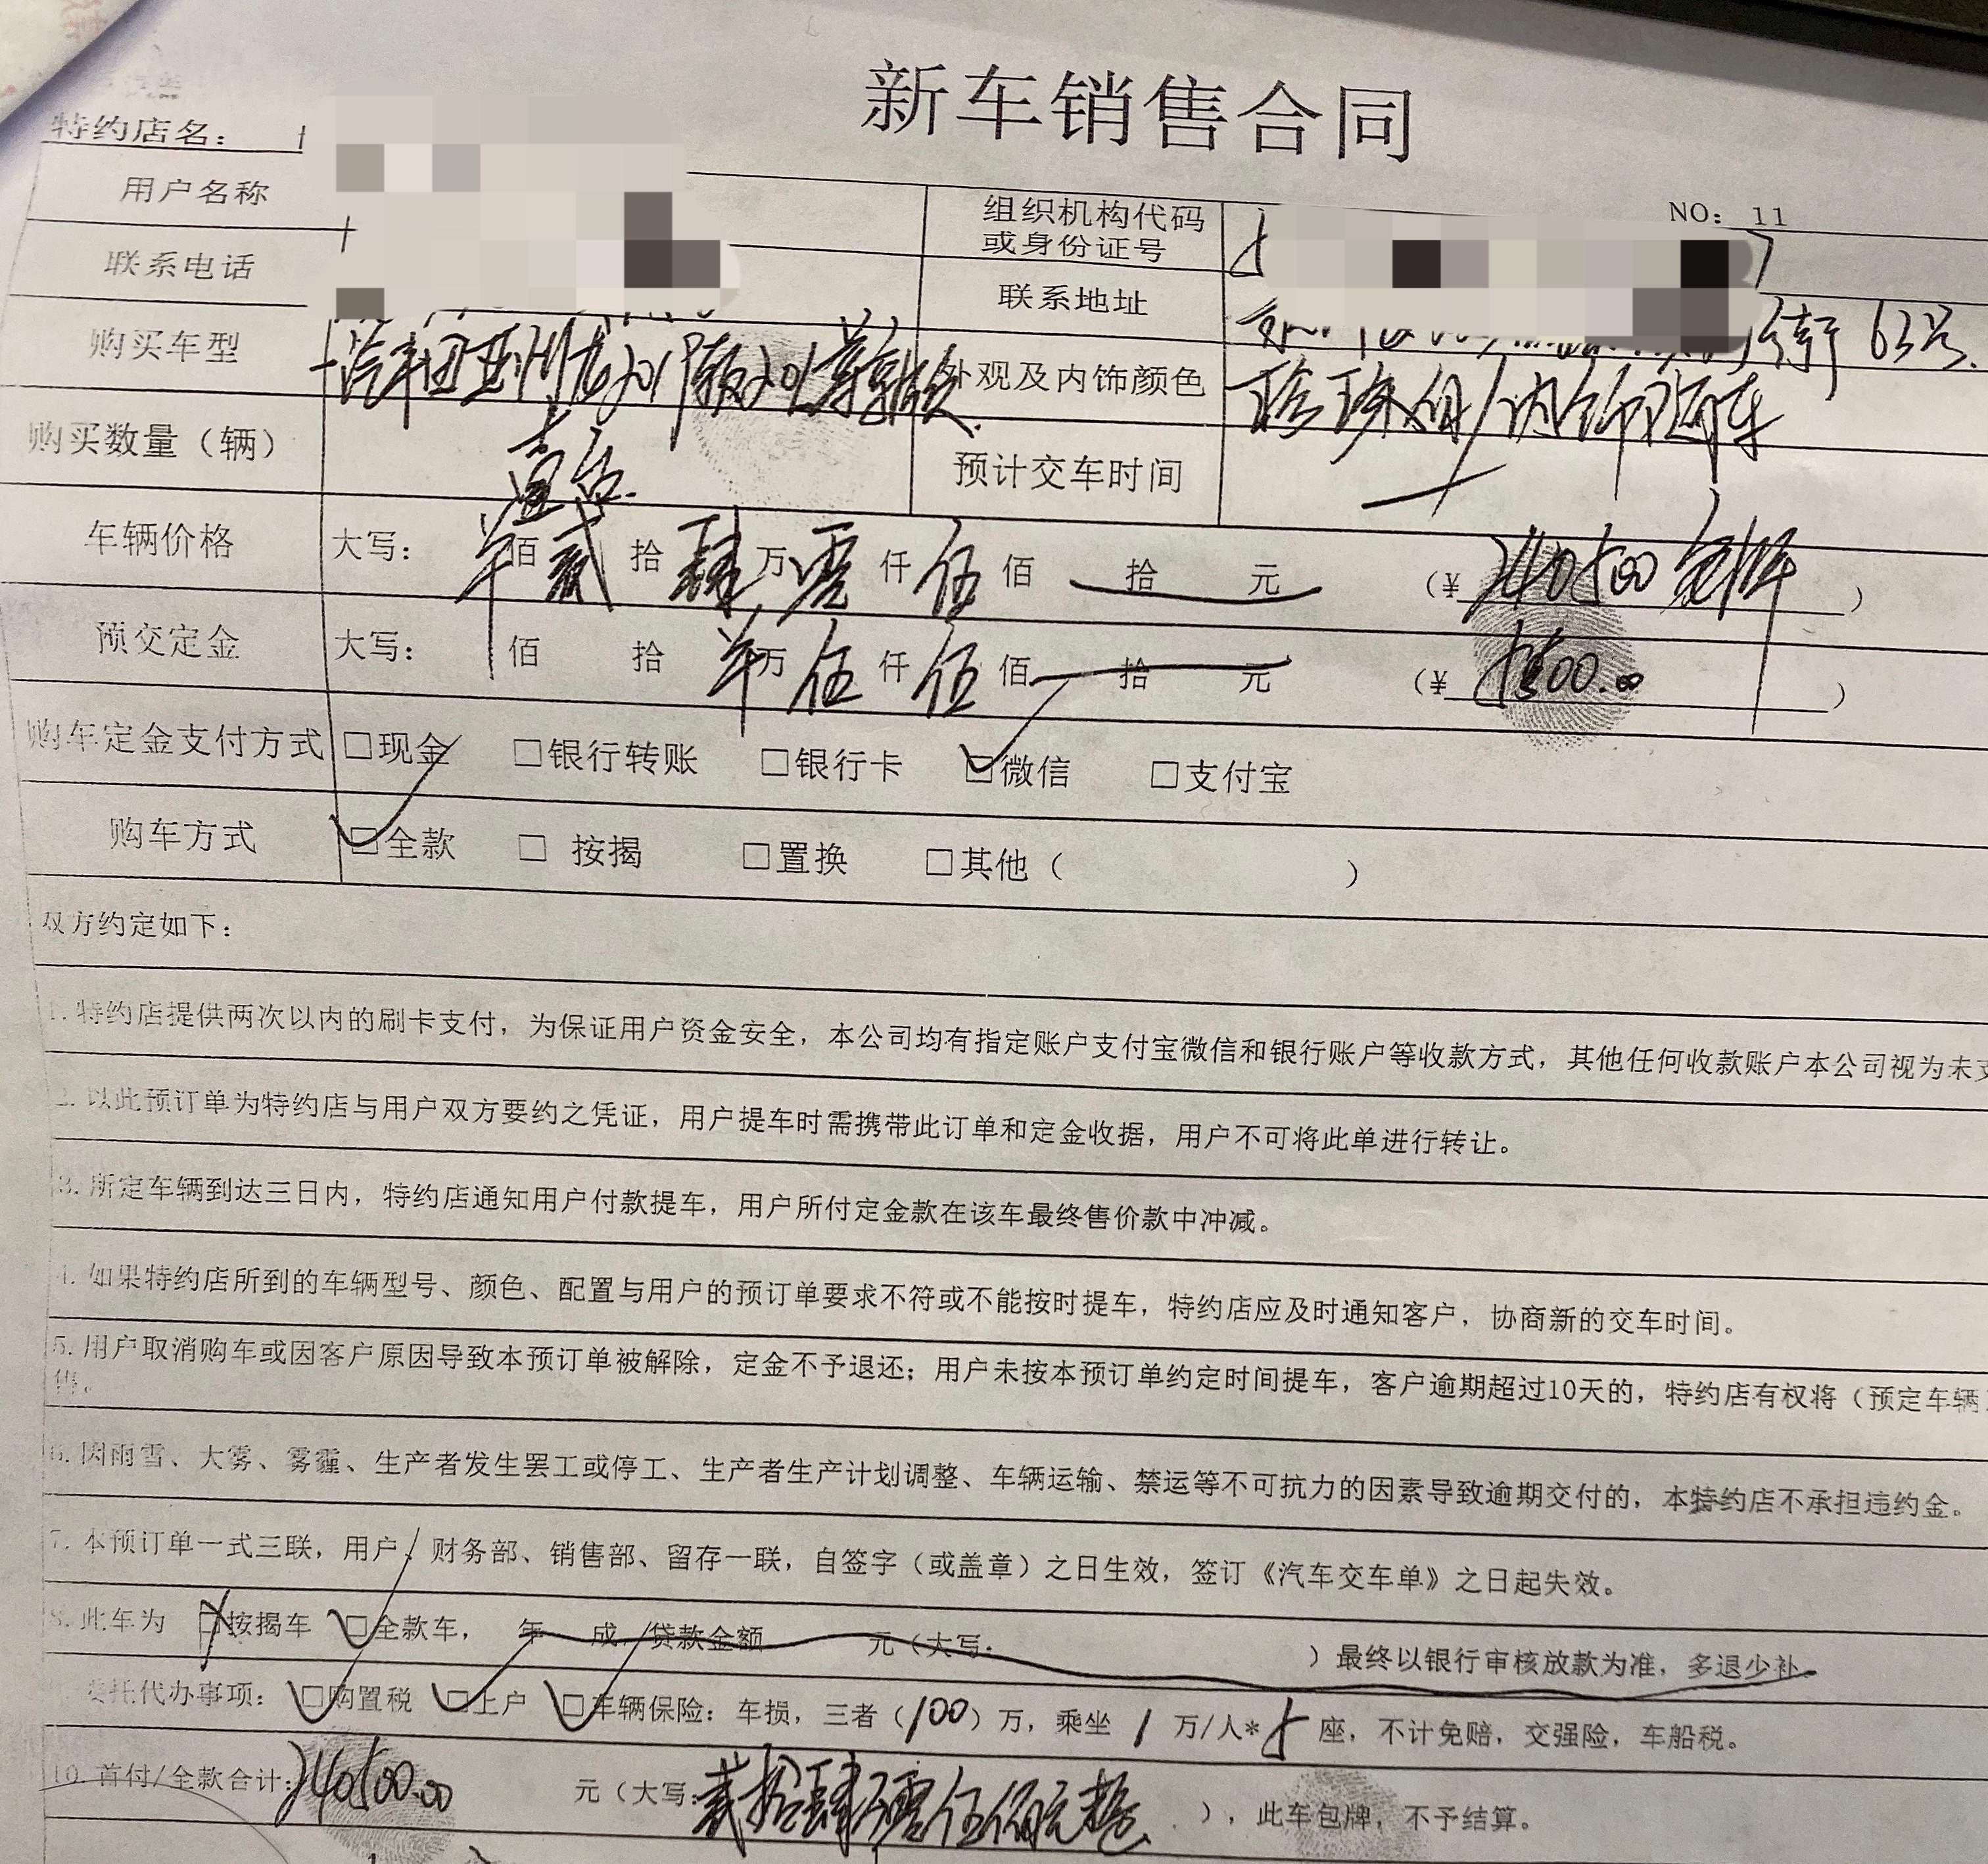 新车销售合同
特约店名：
NO： 11
用户名称 组织机构代码或身份证号
联系电话 联系地址 街 63号.
购买车型 一汽丰田亚洲龙 尊享版 外观及内饰颜色 珍珠白/内饰随车
购买数量（辆） 壹台. 预计交车时间
车辆价格 大写： 羊 佰 贰 拾 肆 万 零 仟 伍 佰 拾 元 （¥ 240500 包牌 ）
预交定金 大写： 佰 拾 羊 万 伍 仟 伍 佰 拾 元 （¥ 5500.00 ）
购车定金支付方式 □现金 □银行转账 □银行卡 □微信 □支付宝
购车方式 □全款 □ 按揭 □置换 □其他（ ）
双方约定如下：
1. 特约店提供两次以内的刷卡支付，为保证用户资金安全，本公司均有指定账户支付宝微信和银行账户等收款方式，其他任何收款账户本公司视为未支
2. 以此预订单为特约店与用户双方要约之凭证，用户提车时需携带此订单和定金收据，用户不可将此单进行转让。
3. 所定车辆到达三日内，特约店通知用户付款提车，用户所付定金款在该车最终售价款中冲减。
4. 如果特约店所到的车辆型号、颜色、配置与用户的预订单要求不符或不能按时提车，特约店应及时通知客户，协商新的交车时间。
5. 用户取消购车或因客户原因导致本预订单被解除，定金不予退还；用户未按本预订单约定时间提车，客户逾期超过10天的，特约店有权将（预定车辆
售。
6. 因雨雪、大雾、雾霾、生产者发生罢工或停工、生产者生产计划调整、车辆运输、禁运等不可抗力的因素导致逾期交付的，本特约店不承担违约金。
7. 本预订单一式三联，用户、财务部、销售部、留存一联，自签字（或盖章）之日生效，签订《汽车交车单》之日起失效。
8. 此车为 □按揭车 □全款车， 年 成，贷款金额 元（大写： ）最终以银行审核放款为准，多退少补
9. 委托代办事项：□购置税 □上户 □车辆保险：车损，三者（100）万，乘坐 1 万/人*5 座，不计免赔，交强险，车船税。
10. 首付/全款合计：240500.00 元（大写：贰拾肆万零伍佰元整. ），此车包牌，不予结算。